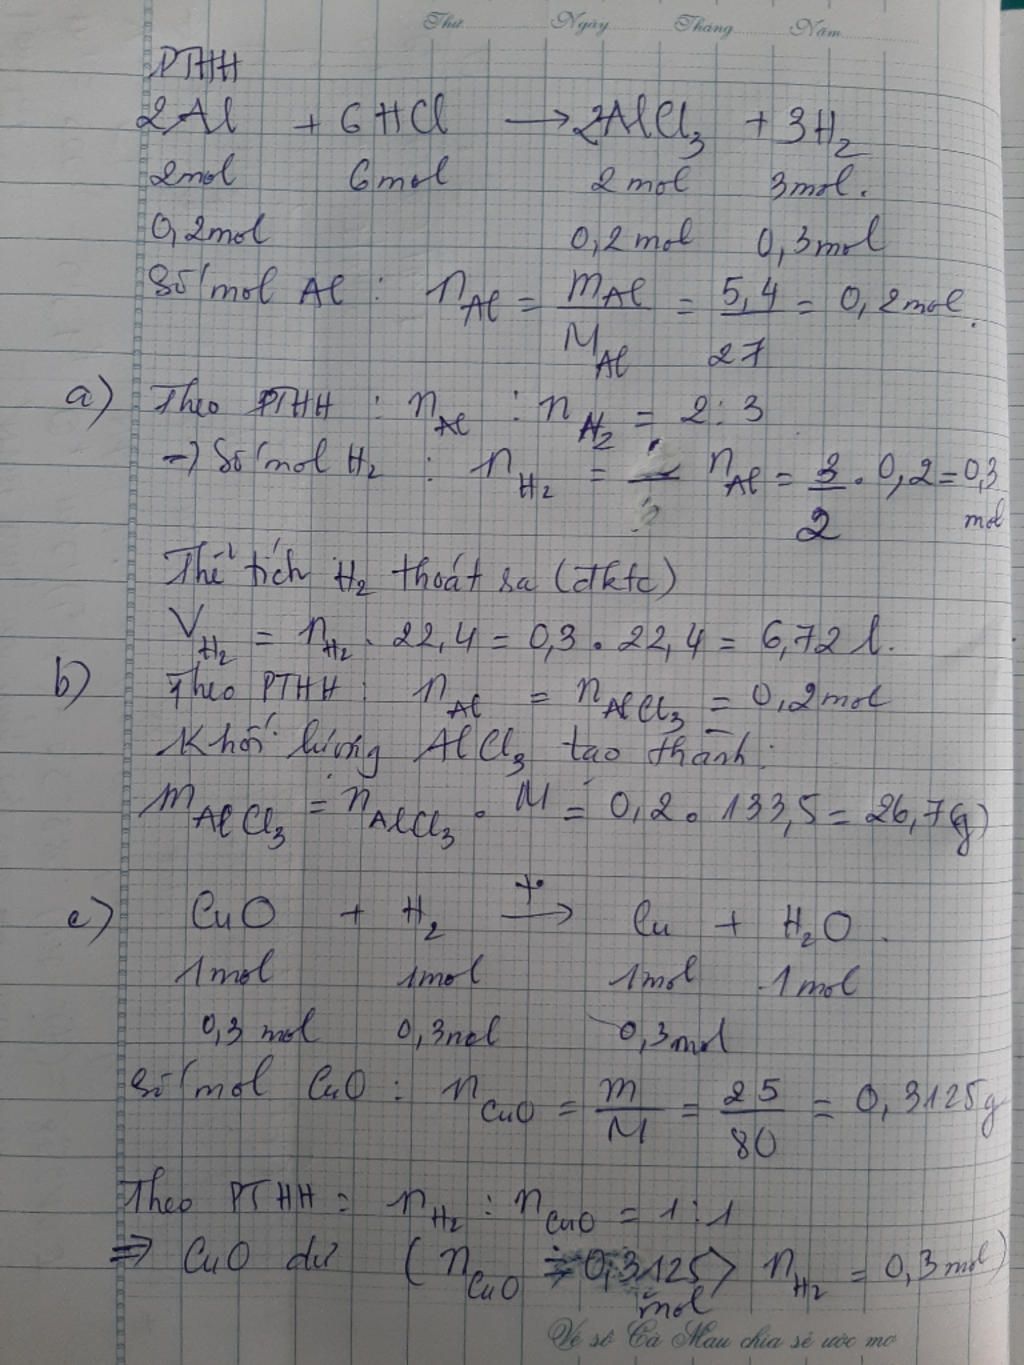 Thứ Ngày Tháng Năm
PTHH
2Al + 6HCl → 2AlCl₃ + 3H₂
2mol 6mol 2mol 3mol.
0,2mol 0,2mol 0,3mol
Số mol Al : n_Al = m_Al / M_Al = 5,4 / 27 = 0,2mol.
a) Theo PTHH : n_Al : n_H₂ = 2:3
=> Số mol H₂ : n_H₂ = n_Al = 3/2 . 0,2 = 0,3 mol
Thể tích H₂ thoát ra (đktc)
V_H₂ = n_H₂ . 22,4 = 0,3 . 22,4 = 6,72 l.
b) Theo PTHH : n_Al = n_AlCl₃ = 0,2mol
Khối lượng AlCl₃ tạo thành:
m_AlCl₃ = n_AlCl₃ . M = 0,2 . 133,5 = 26,7(g)
c) CuO + H₂ –t°→ Cu + H₂O.
1mol 1mol 1mol 1mol
0,3 mol 0,3mol 0,3mol
Số mol CuO : n_CuO = m/M = 25/80 = 0,3125g
Theo PTHH : n_H₂ : n_CuO = 1:1
=> CuO dư (n_CuO = 0,3125 mol > n_H₂ = 0,3mol)
Vé số Cà Mau chia sẻ ước mơ